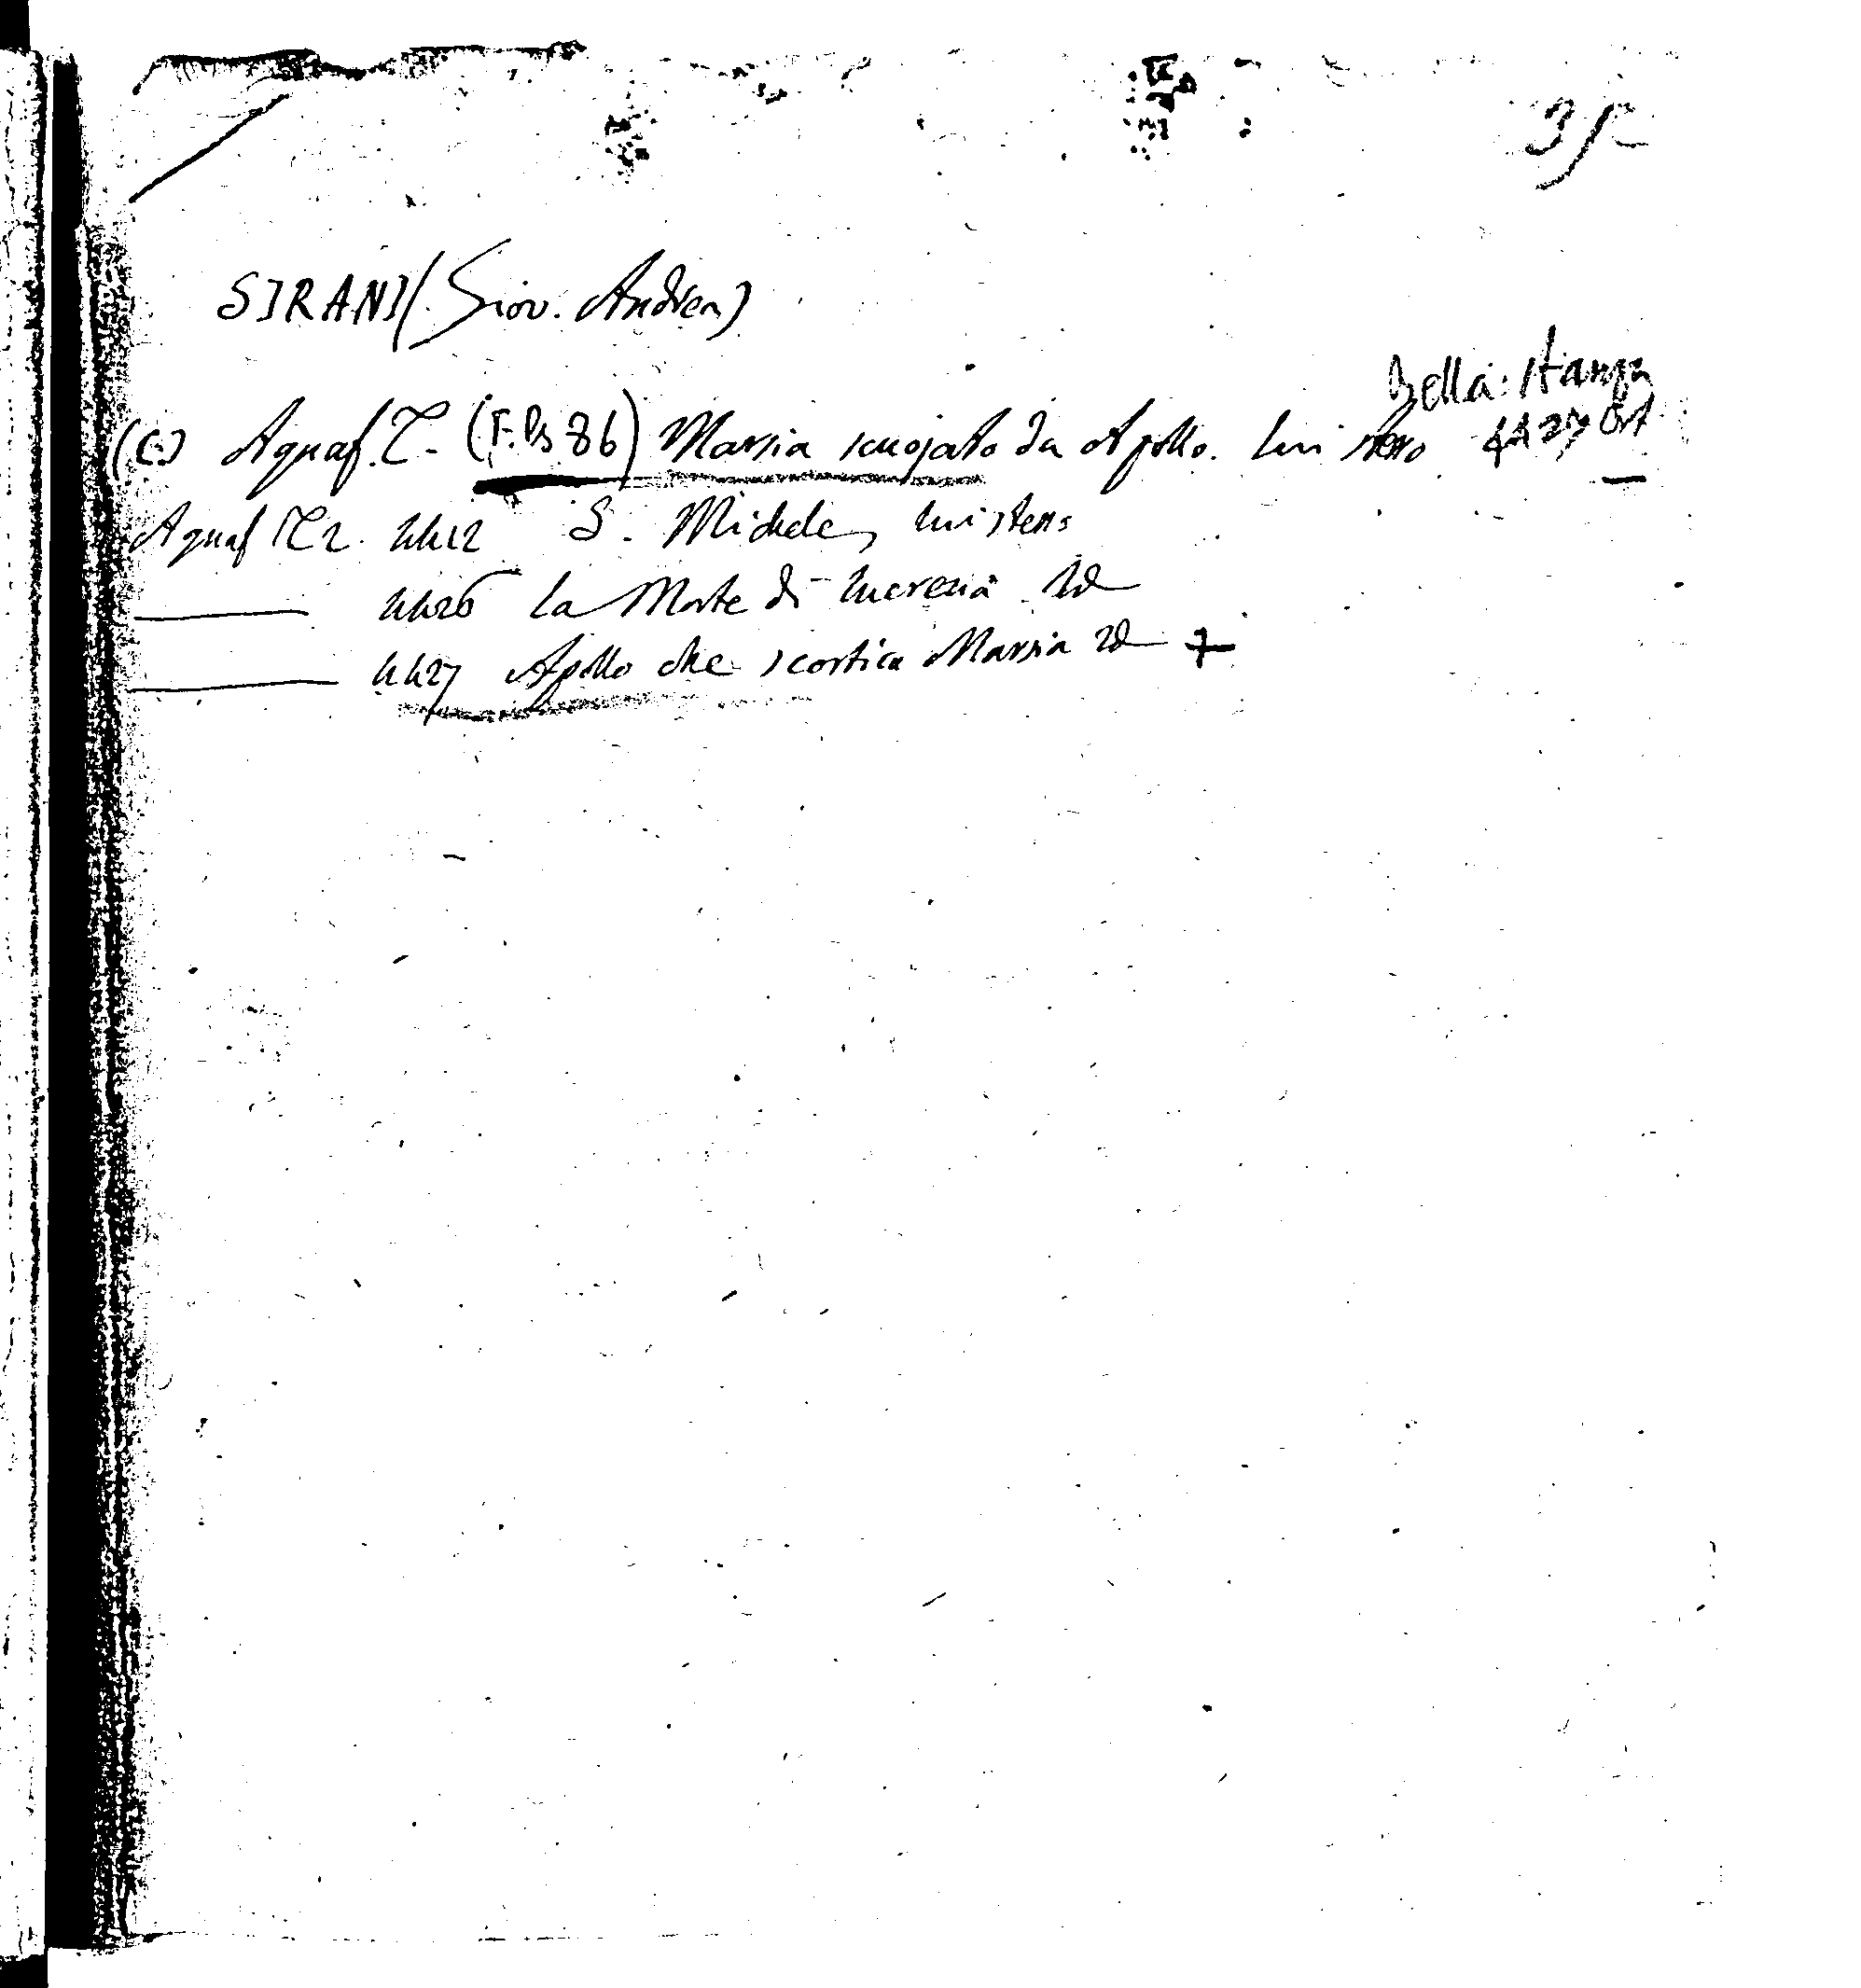 SIRANI (Giov. Andrea)
Bella Stampa
(C.) Aquaf. T. (F. Ps 86) Marsia scuojato da Apollo. lui stesso 4427 Ort
Aquaf T 2. 4412 S. Michele, lui stesso
4426 La Morte di Lucrezia Id
4427 Apollo che scortica Marsia Id +